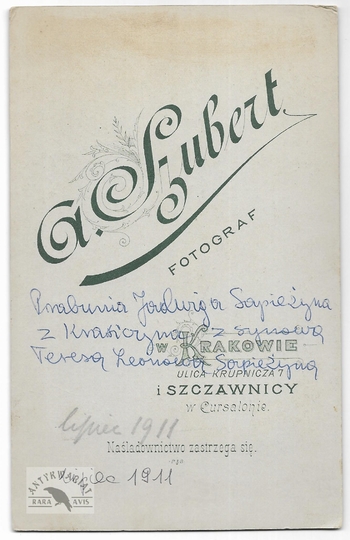 A. Szubert
FOTOGRAF
Prababunia Jadwiga Sapieżyna
z Krasiczyna z synową
w KRAKOWIE
Teresą Leonową Sapieżyną
ULICA KRUPNICZA 7
i SZCZAWNICY
w Cursalonie.
lipiec 1911
Naśladownictwo zastrzega się.
1911
ANTYKWARIAT
RARA AVIS